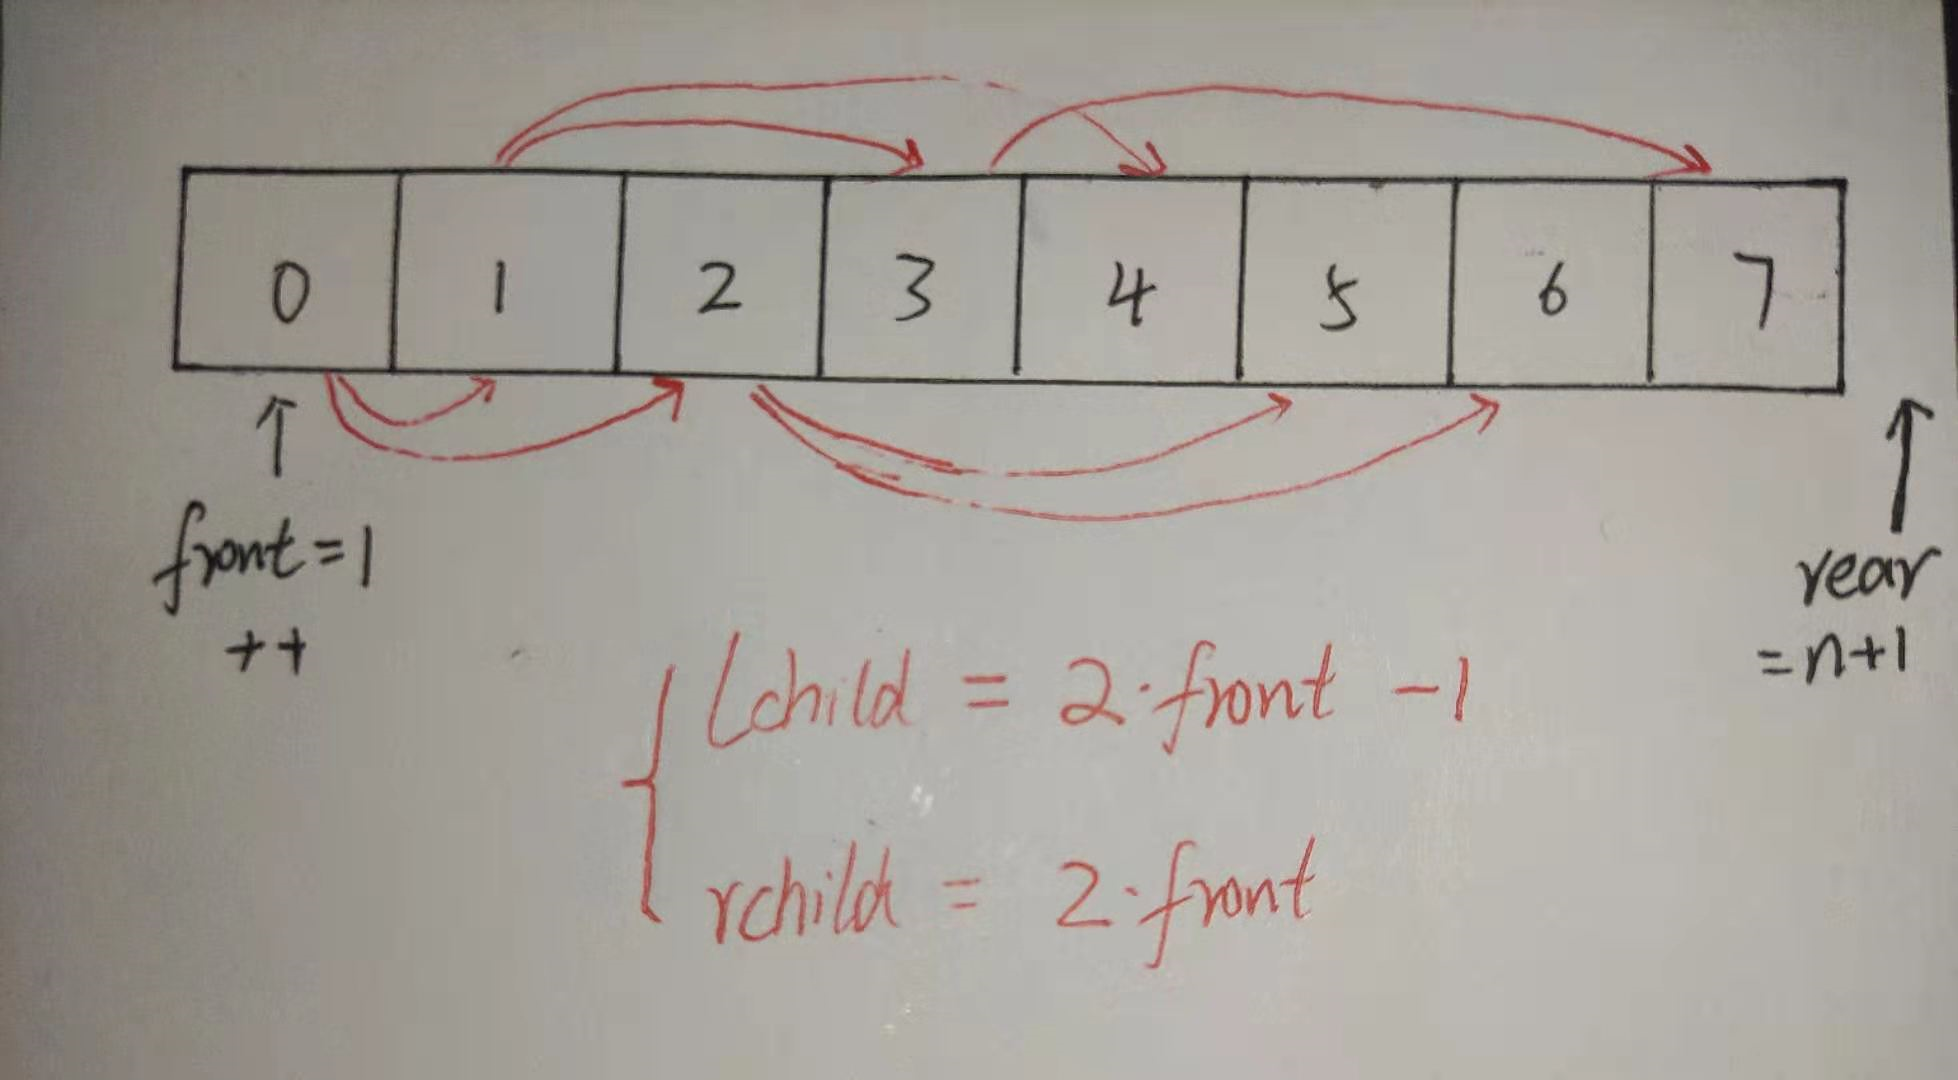 0 1 2 3 4 5 6 7
front=1
++
rear
=n+1
lchild = 2·front -1
rchild = 2·front